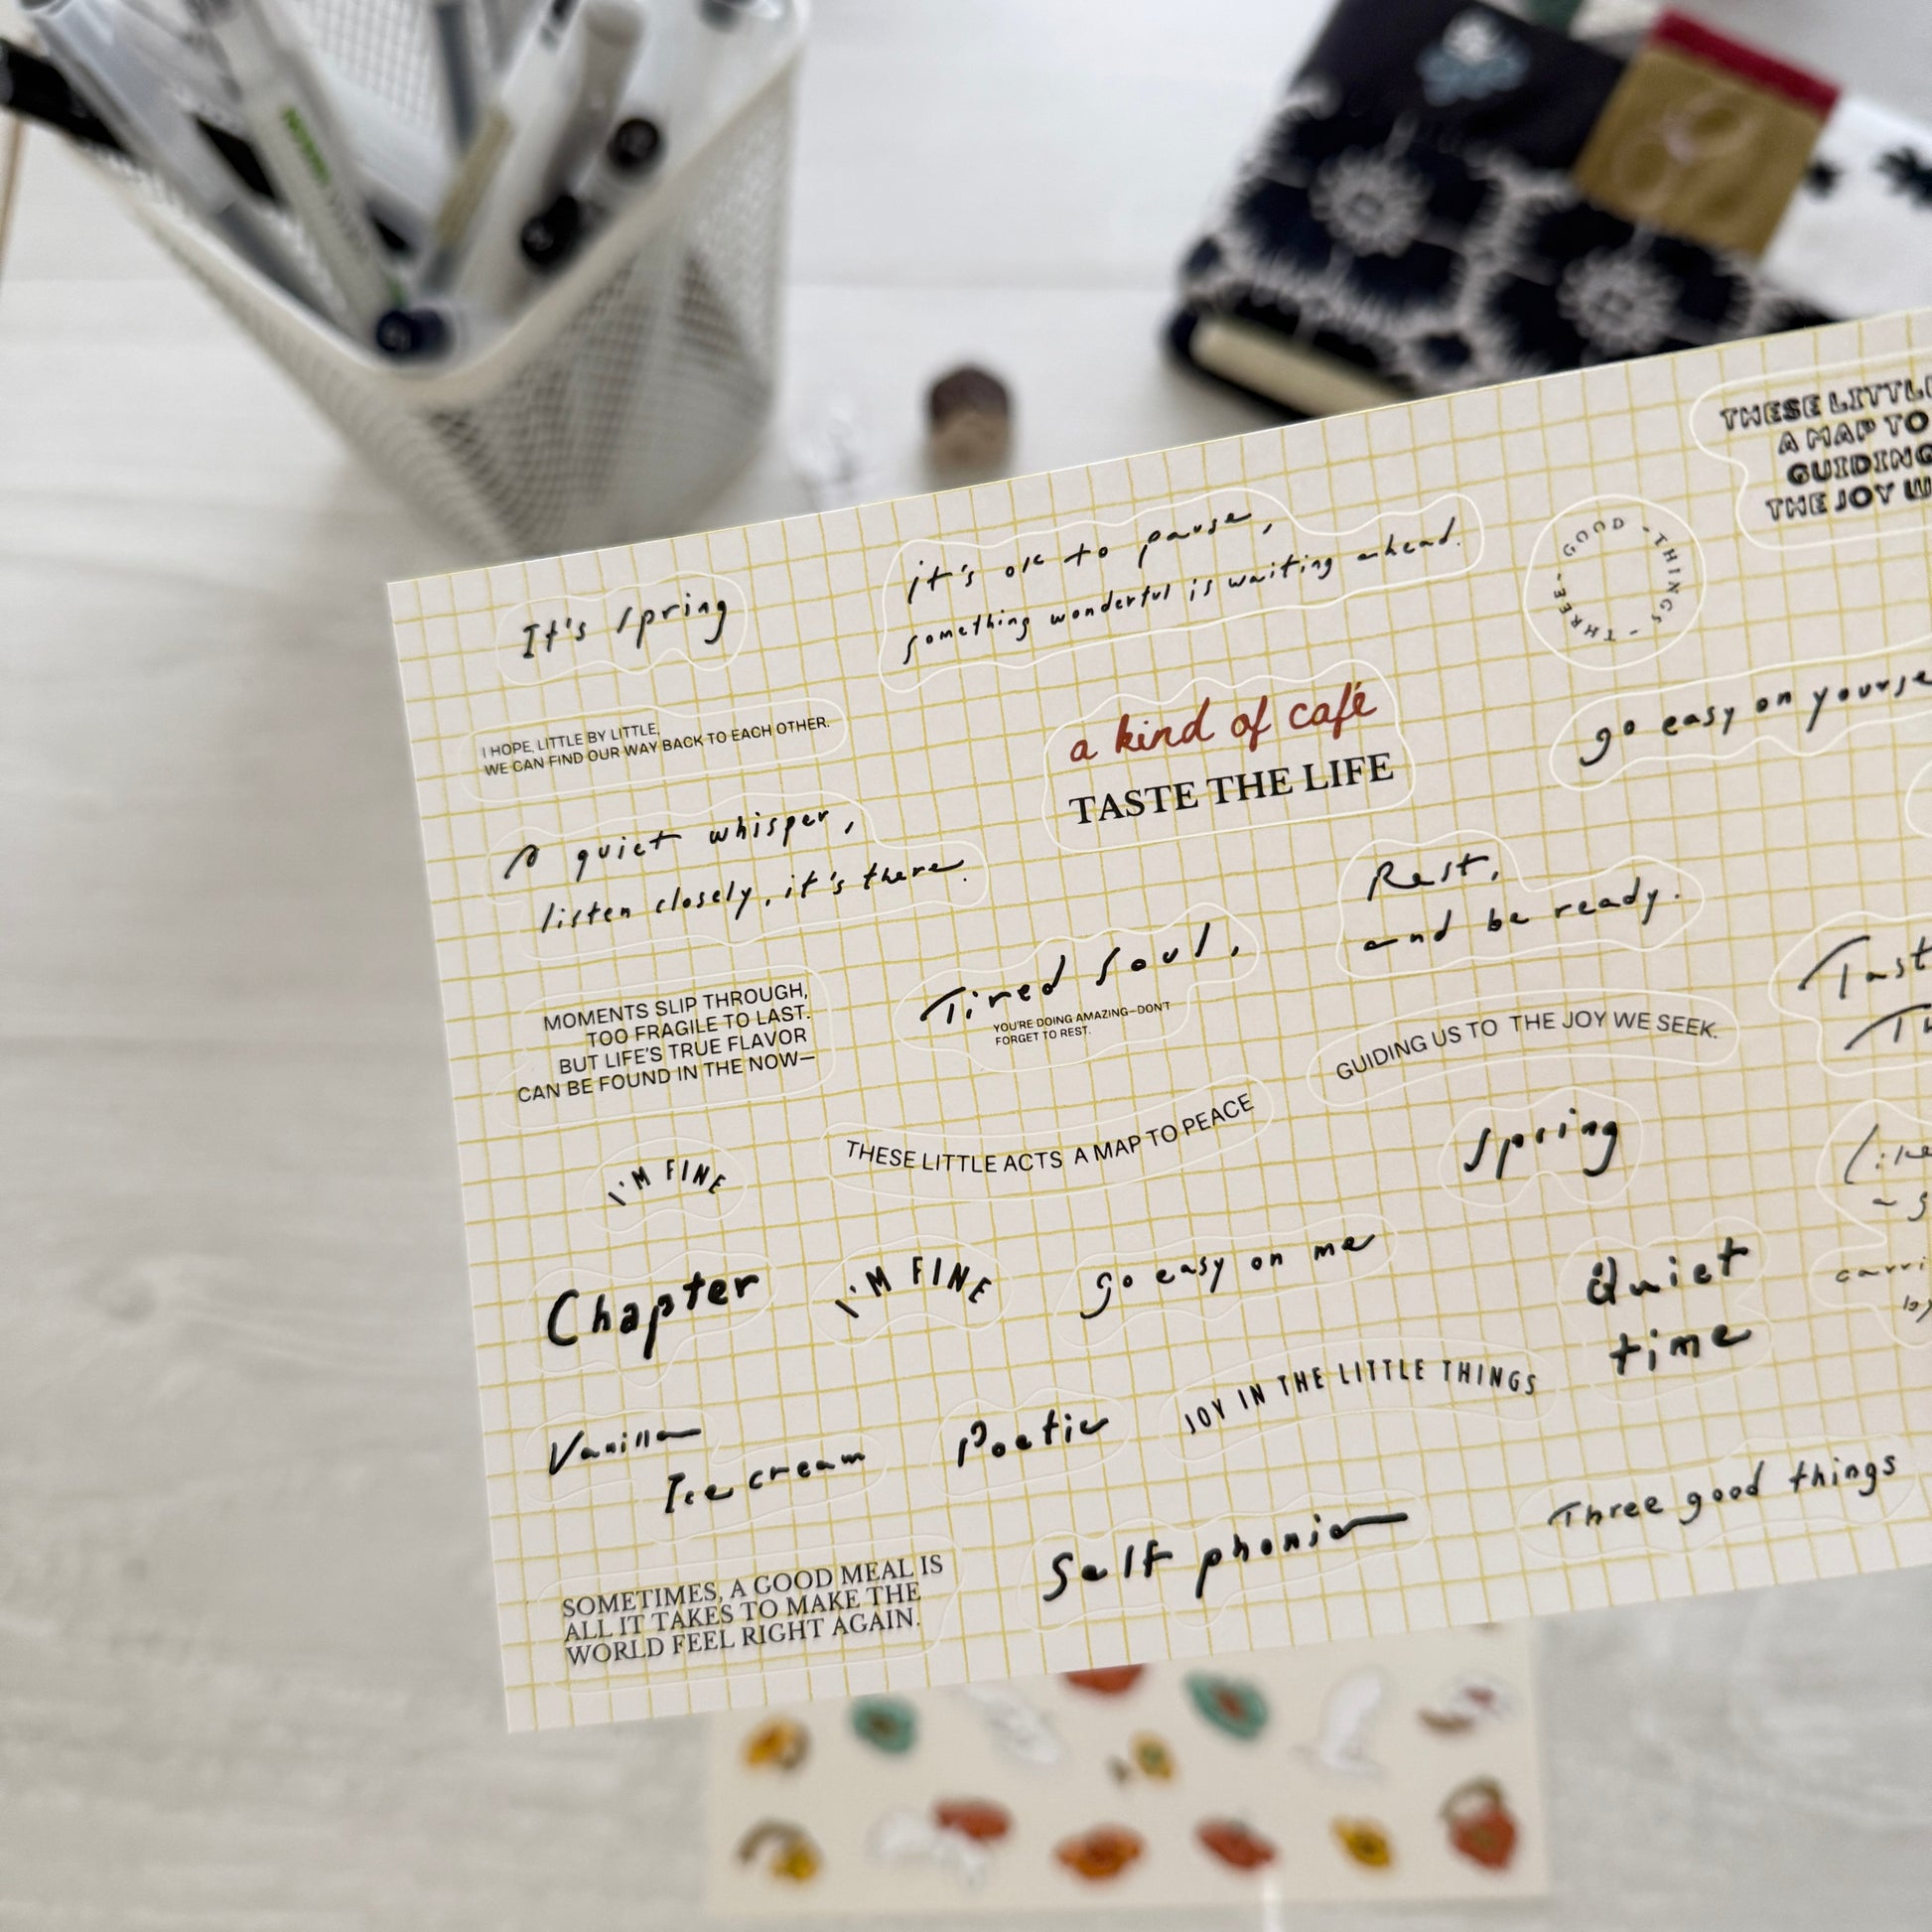 It's spring
it's ok to pause,
something wonderful is waiting ahead.
GOOD - THINGS - THREE -
THESE LITTLE
A MAP TO
GUIDING
THE JOY W
I HOPE, LITTLE BY LITTLE,
WE CAN FIND OUR WAY BACK TO EACH OTHER.
a kind of café
TASTE THE LIFE
go easy on yourse
A quiet whisper,
listen closely, it's there.
Rest,
and be ready.
Tired soul,
YOU'RE DOING AMAZING—DON'T
FORGET TO REST.
Tast
MOMENTS SLIP THROUGH,
TOO FRAGILE TO LAST.
BUT LIFE'S TRUE FLAVOR
CAN BE FOUND IN THE NOW—
GUIDING US TO THE JOY WE SEEK.
THESE LITTLE ACTS A MAP TO PEACE
Spring
I'M FINE
Like
a s
carri
by
Chapter
I'M FINE
go easy on me
Quiet
time
Vanilla
Ice cream
Poetic
JOY IN THE LITTLE THINGS
Three good things
Self phonic
SOMETIMES, A GOOD MEAL IS
ALL IT TAKES TO MAKE THE
WORLD FEEL RIGHT AGAIN.